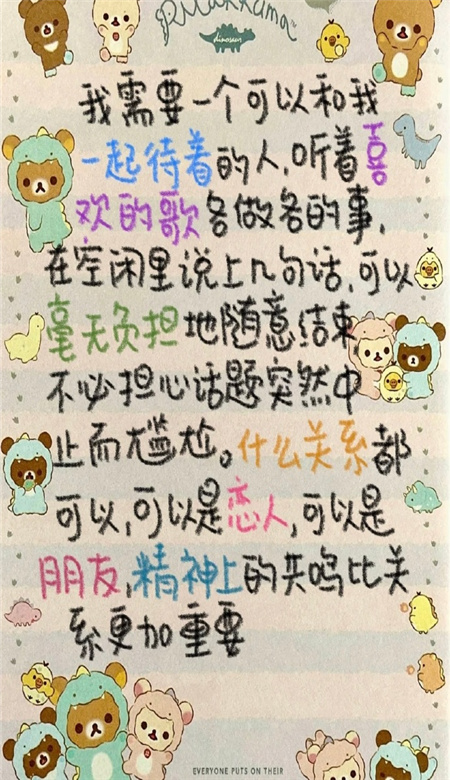 Rilakkuma
dinosaur
我需要一个可以和我
一起待着的人,听着喜
欢的歌各做各的事,
在空闲里说上几句话,可以
毫无负担地随意结束
不必担心话题突然中
止而尴尬。什么关系都
可以,可以是恋人,可以是
朋友,精神上的共鸣比关
系更加重要
EVERYONE PUTS ON THEIR